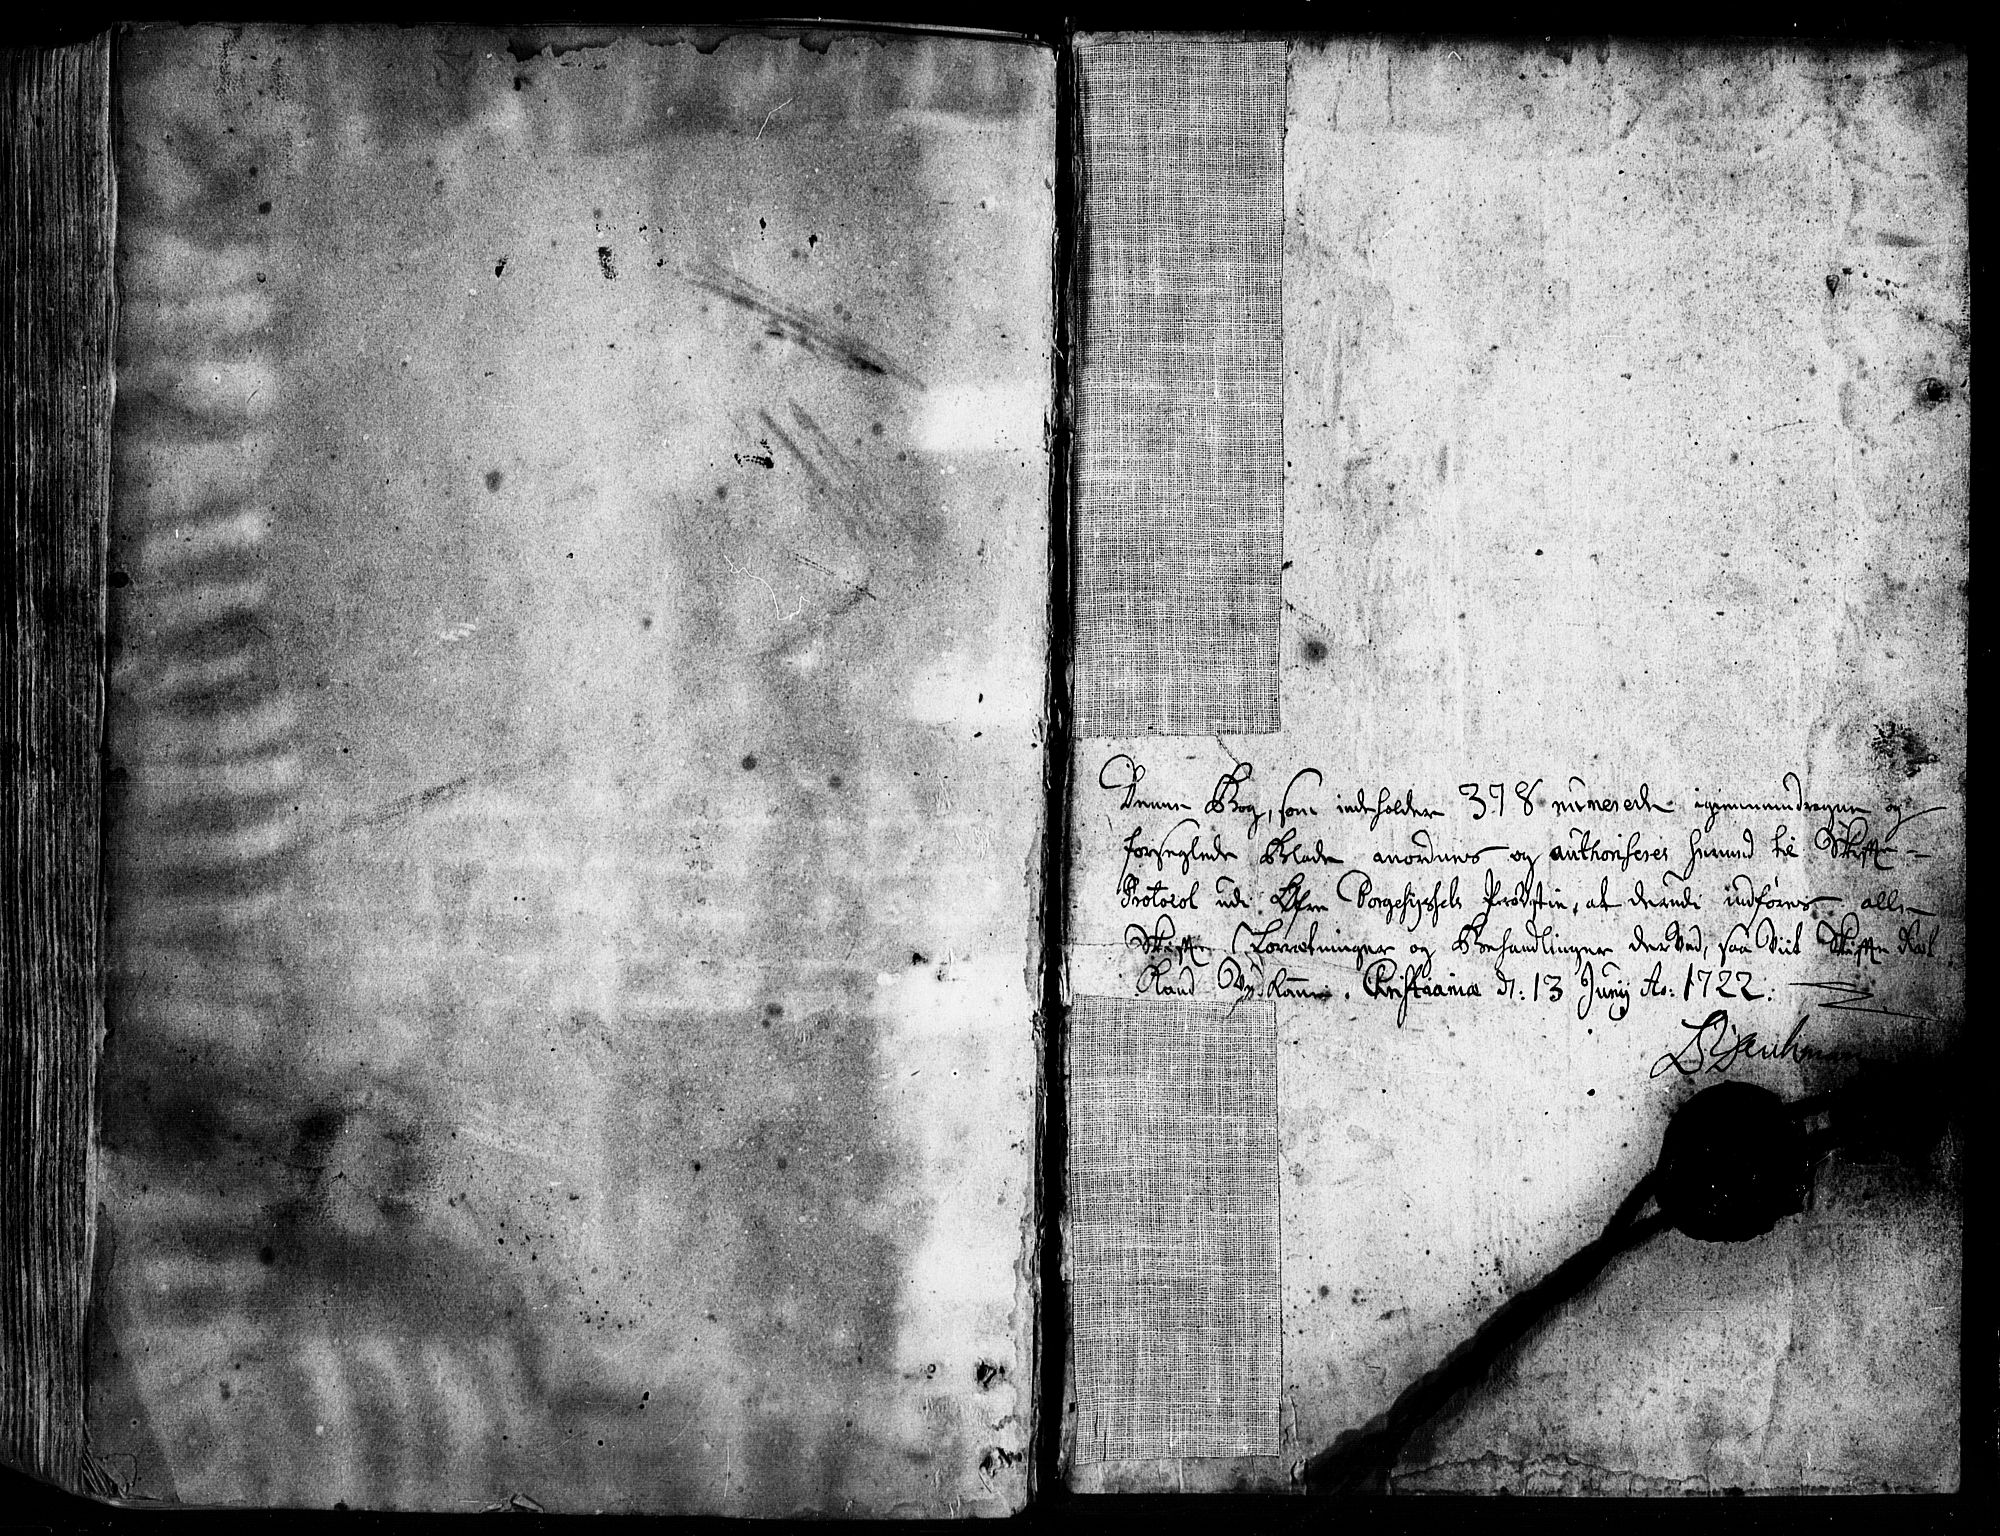 Denne Bog, som indeholder 378 numerede igiennemdragne og
forseglede Blade anordnes og authoriseres hermed til Skifte-
Protocol udi Øfre Borgesyssels Provstie, at derudi indføres alle
Skifte Forretninger og Behandlinger derved, saa viit Skifte
Christiania d: 13 Junij Ao: 1722: